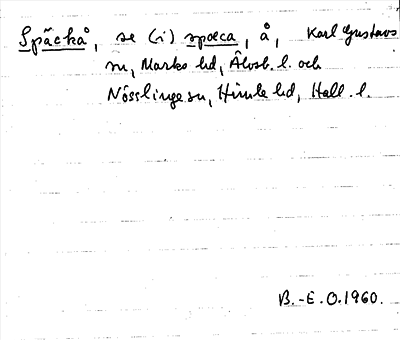 Späckå, se (i) spæca, å, Karl Gustavs
sn, Marks hd, Älvsb. l. och
Nösslinge sn, Himle hd, Hall. l.
B.-E. O. 1960.